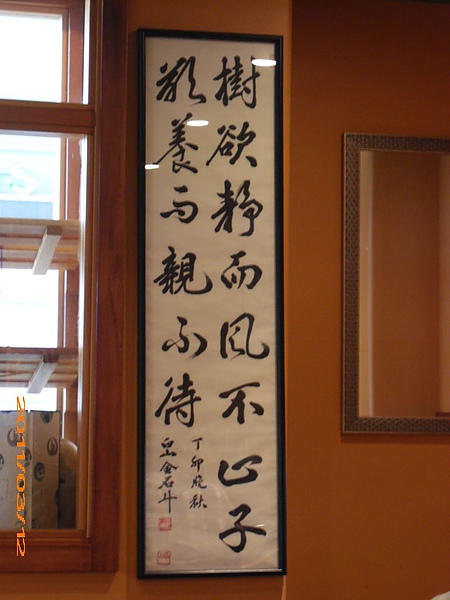 樹欲靜而風不止子
欲養而親不待
丁卯晚秋
金石斗
2011/03/12